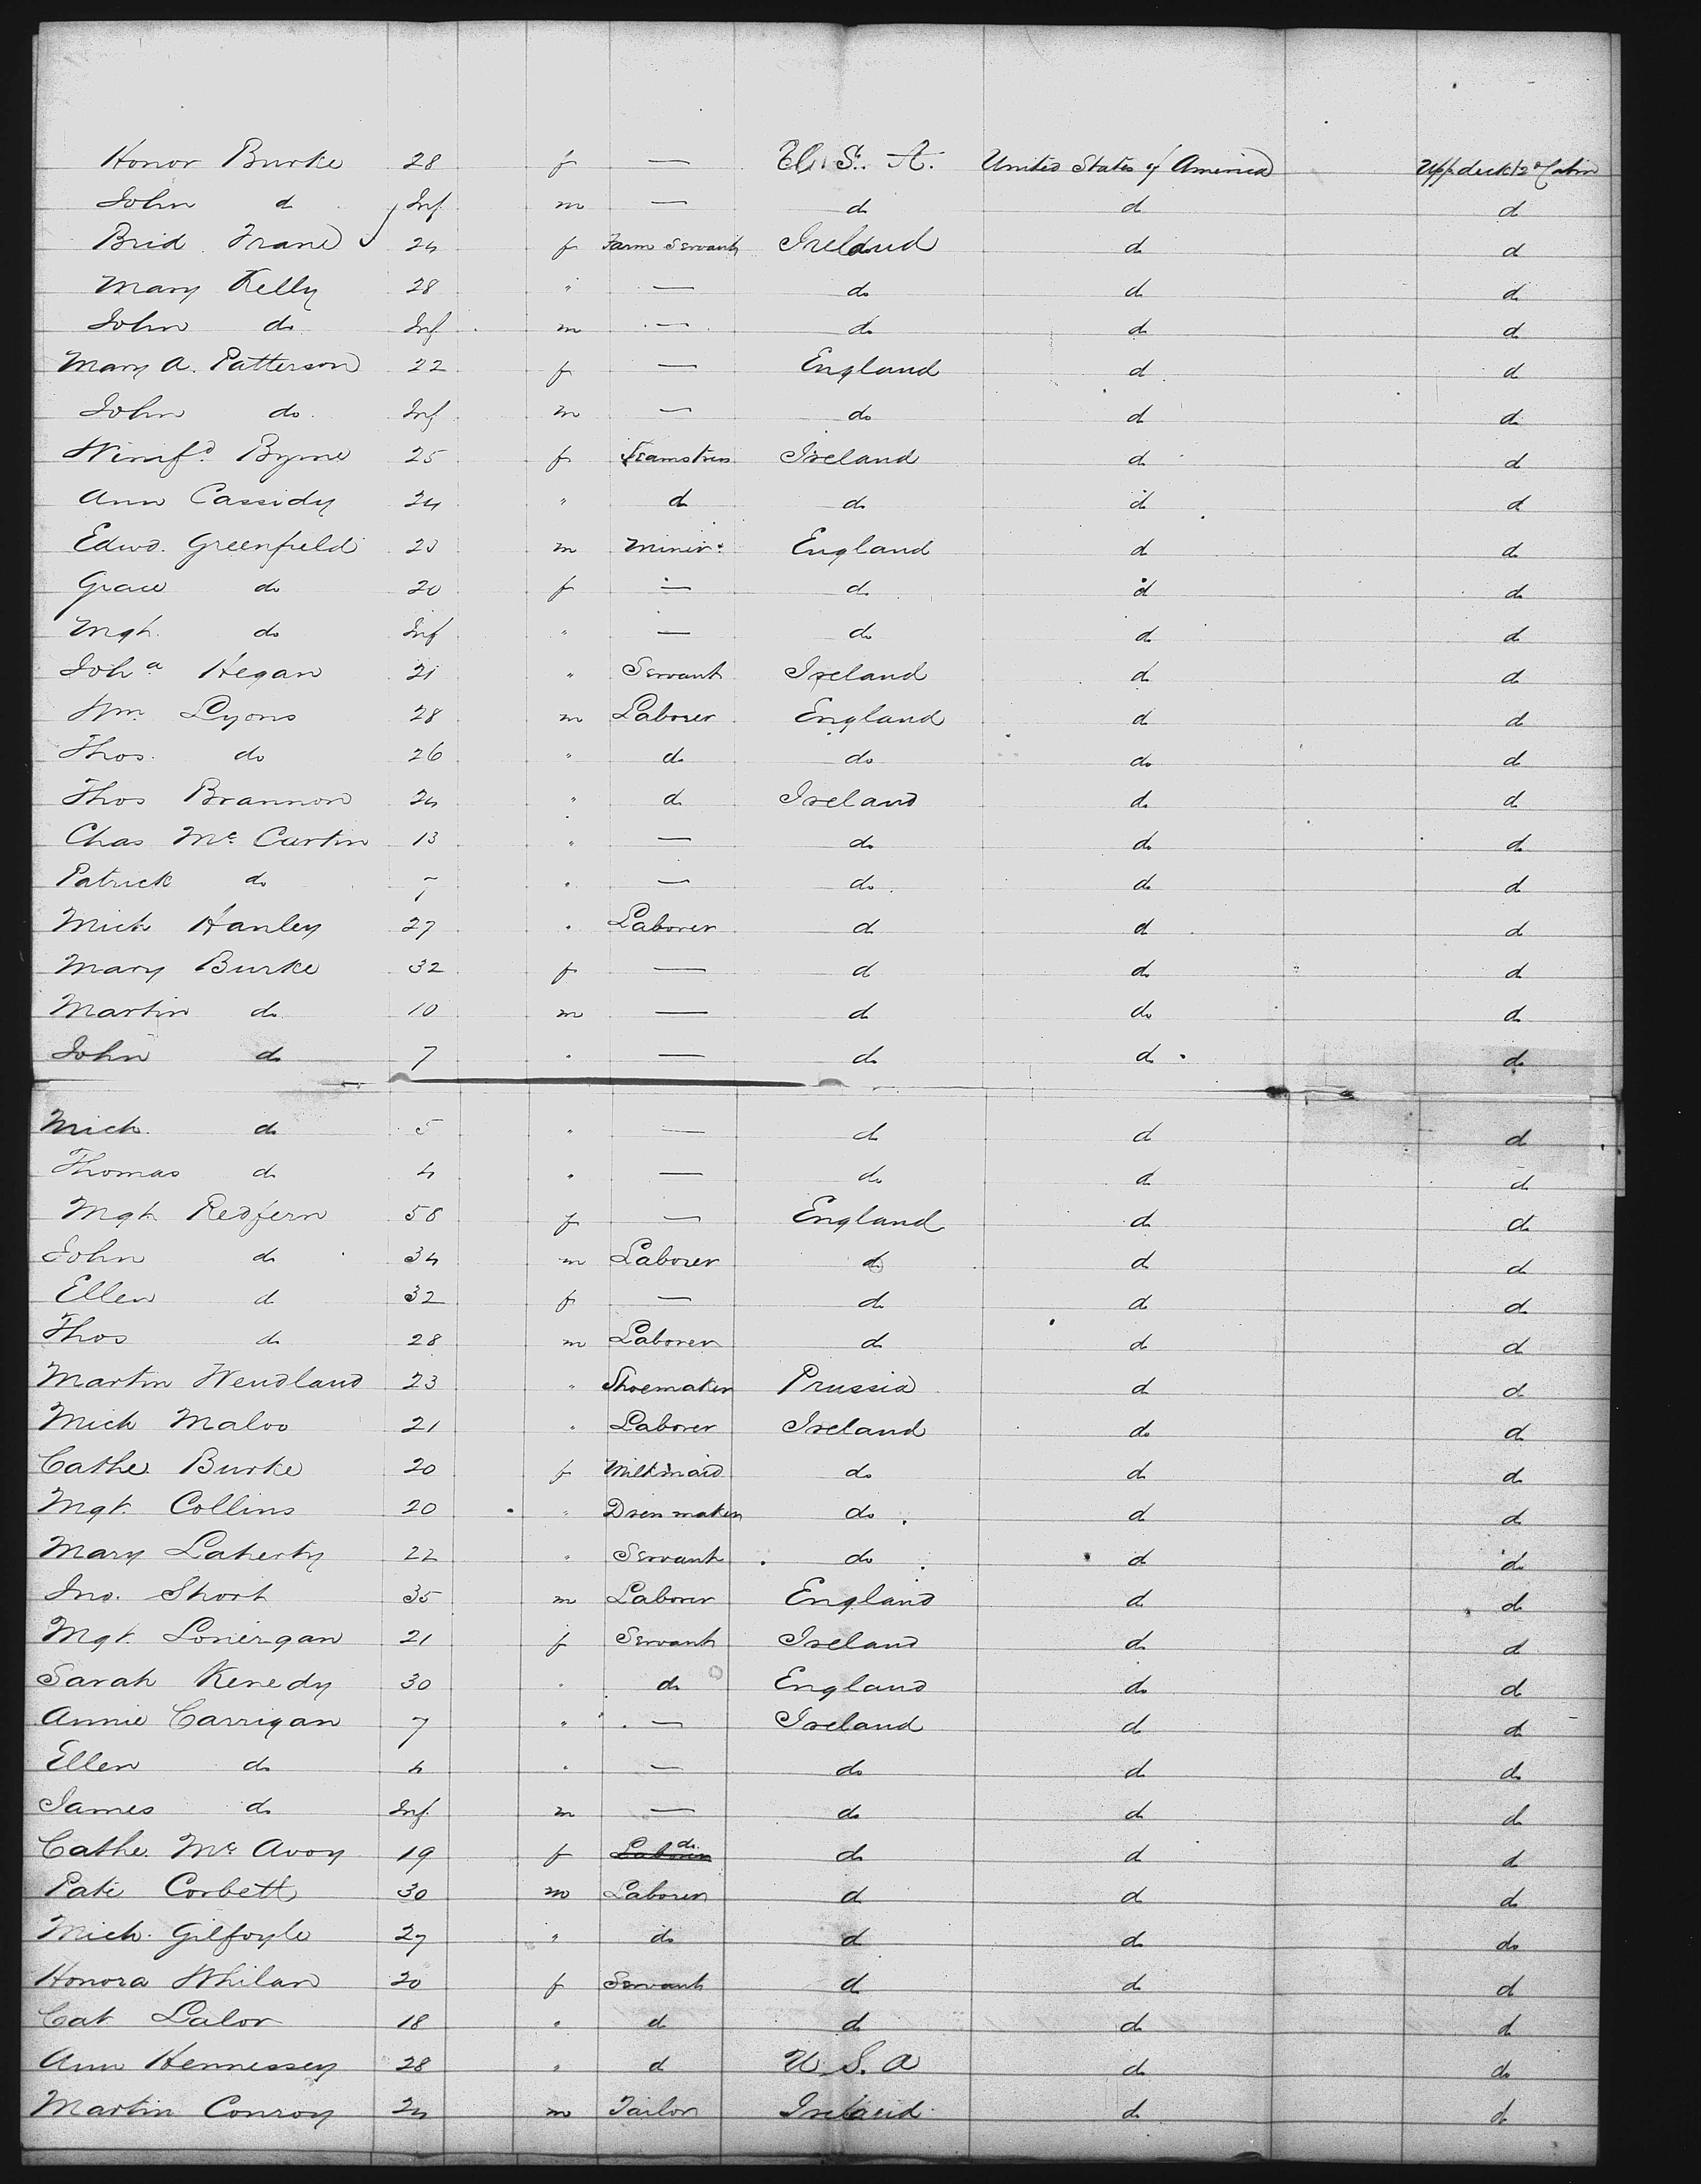 Honor Burke 28 f — U. S. A. United States of America Upp deck & 2d Cabin
John d Inf m — d d d
Brid. Frane 24 f Farm Servant Ireland d d
Mary Kelly 28 " — do d d
John do Inf m — do d d
Mary A. Patterson 22 f — England d d
John do. Inf m — do d d
Winifd Byrne 25 f Seamstress Ireland d d
Ann Cassidy 24 " d do d d
Edwd. Greenfield 23 m Miner England d d
Grace do 20 f — d d d
Mgt. do Inf " — do d d
Joha Hegan 21 " Servant Ireland d d
Wm. Lyons 28 m Laborer England d d
Thos. do 26 " do do do d
Thos Brannon 24 " d Ireland d d
Chas Mc Curtin 13 " — do do d
Patrick do 7 " — do do d
Mich Hanley 27 " Laborer d d d
Mary Burke 32 f — d d d
Martin do 10 m — d do d
John do 7 " — do d do
Mich. d 5 " — d d d
Thomas d 4 " — do d d
Mgt Redfern 58 f — England d d
John d 34 m Laborer d d d
Ellen d 32 f — d d d
Thos d 28 m Laborer d d d
Martin Wendland 23 " Shoemaker Prussia d d
Mich Maloo 21 " Laborer Ireland do d
Cathe Burke 20 f Milkmaid do d d
Mgt. Collins 20 " Dressmaker do d d
Mary Laherty 22 " Servant do d do
Jno. Short 35 m Laborer England d do
Mgt. Lonergan 21 f Servant Ireland d d
Sarah Kenedy 30 " do England do d
Annie Carrigan 7 " — Ireland d d
Ellen do 4 " — do d do
James do Inf. m — do d d
Cathe Mc Avoy 19 f Laborer do d d d
Patk Corbett 30 m Laborer d d d
Mich. Gilfoyle 27 " do d d do
Honora Whilan 20 f Servant d d d
Cat Lalor 18 " d d d d
Ann Hennessey 28 " d U. S. A do do
Martin Conroy 24 m Tailor Ireland d d